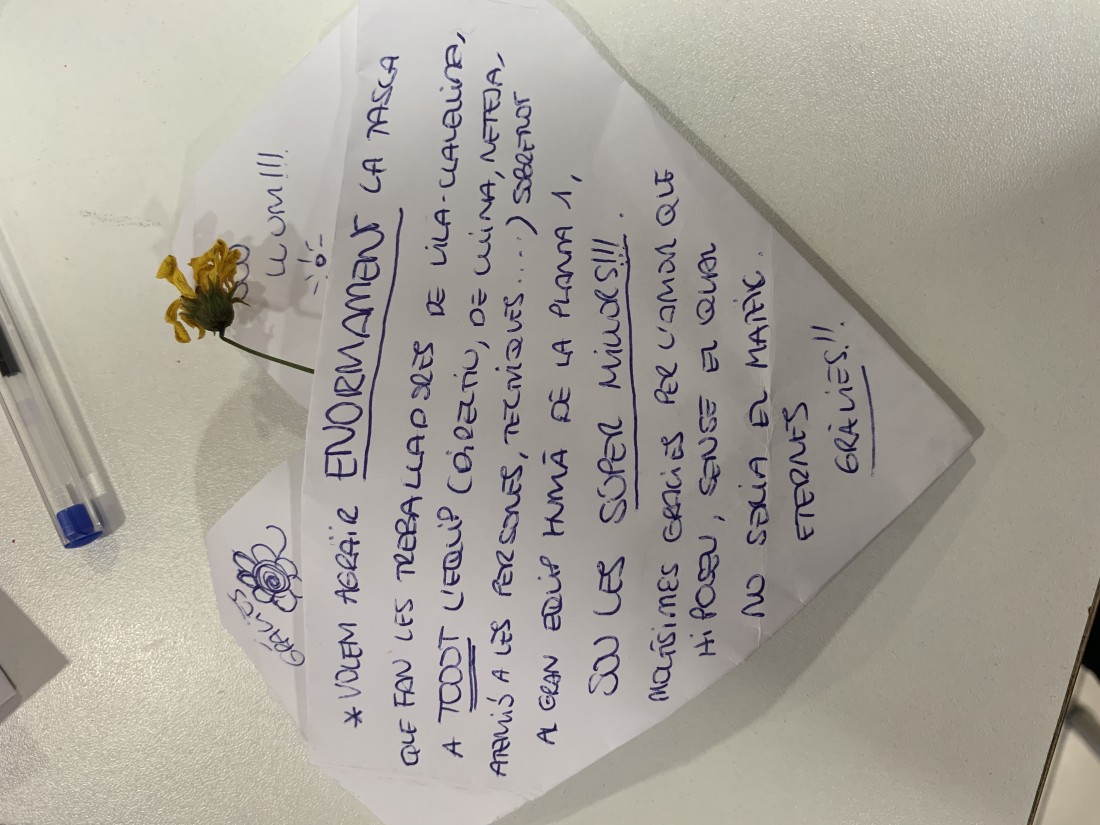 GRÀCIES
SOU
LLUM!!!
* VOLEM AGRAÏR ENORMAMENT LA TASCA
QUE FAN LES TREBALLADORES DE VILA-CLAVELINA,
A TOOOT L'EQUIP (DIRECTIU, DE CUINA, NETEJA,
ATENCIÓ A LES PERSONES, TECNIQUES....) SOBRETOT
AL GRAN EQUIP HUMÀ DE LA PLANTA 1,
SOU LES SÚPER MILLORS!!!.
MOLTÍSIMES GRÀCIES PER L'AMOR QUE
HI POSEU, SENSE EL QUAL
NO SERIA EL MATEIX.
ETERNES
GRÀCIES!!!